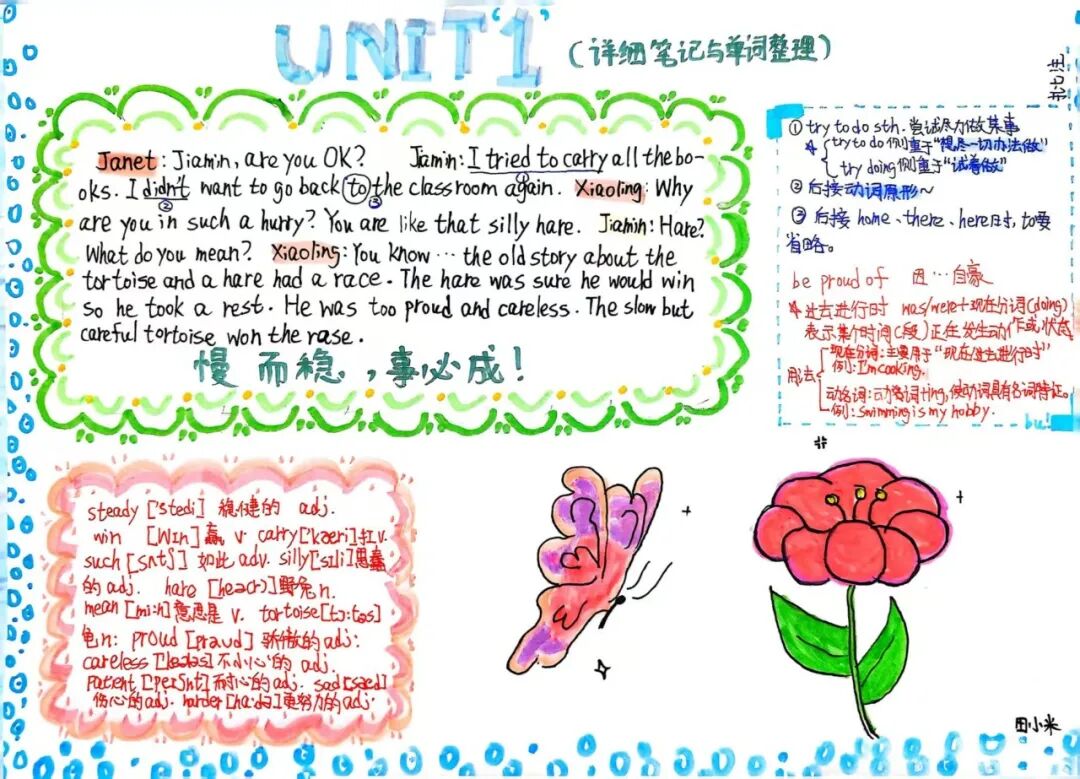 UNIT1
(详细笔记与单词整理)
批注
Janet: Jiamin, are you OK? Jiamin: I tried to carry all the bo-
①
oks. I didn't want to go back to the classroom again. Xiaoling: Why
② ③
are you in such a hurry? You are like that silly hare. Jiamin: Hare?
What do you mean? Xiaoling: You know … the old story about the
tortoise and a hare had a race. The hare was sure he would win
so he took a rest. He was too proud and careless. The slow but
careful tortoise won the rase.
慢而稳,事必成!
① try to do sth. 尝试尽力做某事
try to do 侧重于“想尽一切办法做”
try doing 侧重于“试着做”
② 后接动词原形~
③ 后接 home、there、here时,to要
省略。
be proud of 因…自豪
过去进行时 was/were+现在分词(doing)
表示某个时间(段)正在发生动作或状态
用法
现在分词:主要用于“现在/过去进行时”
例:I'm cooking.
动名词:动名词+ing,使动词具有名词特征。
例:Swimming is my hobby.
bu!
steady ['stedi] 稳健的 adj.
win [wɪn] 赢 v. carry [kæri] 扛 v.
such [sʌtʃ] 如此 adv. silly [sɪli] 愚蠢
的 adj. hare [heə(r)] 野兔 n.
mean [mi:n] 意思是 v. tortoise [tɔ:təs]
龟 n: proud [praʊd] 骄傲的 adj:
careless 不小心的 adj.
patient [peɪʃnt] 耐心的 adj. sad [sæd]
伤心的 adj. harder [ha:də] 更努力的 adj
田小米